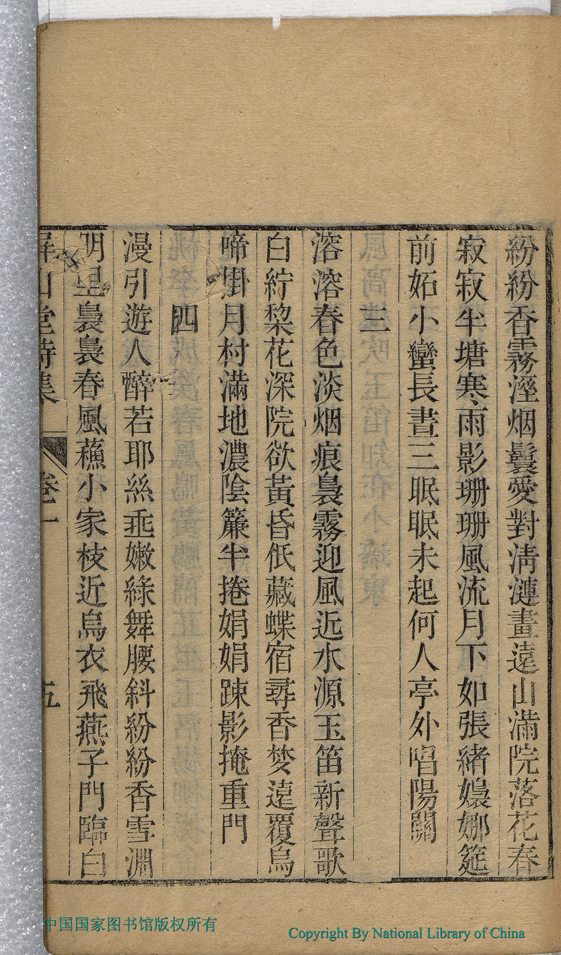 紛紛香霧溼烟鬟愛對淸漣畫遠山滿院落花春
寂寂半塘寒雨影珊珊風流月下如張緒嬝娜筵
前妬小蠻長晝三眠眠未起何人亭外唱陽關
三
溶溶春色淡烟痕裊霧迎風近水源玉笛新聲歌
白紵棃花深院欲黃昏低藏蝶宿尋香梦遠覆烏
啼掛月村滿地濃陰簾半捲娟娟踈影掩重門
四
漫引遊人醉若耶絲垂嫩綠舞腰斜紛紛香雪淵
明里裊裊春風蘓小家枝近烏衣飛燕子門臨白
屏山堂詩集 卷一 五
中国国家图书馆版权所有
Copyright By National Library of China